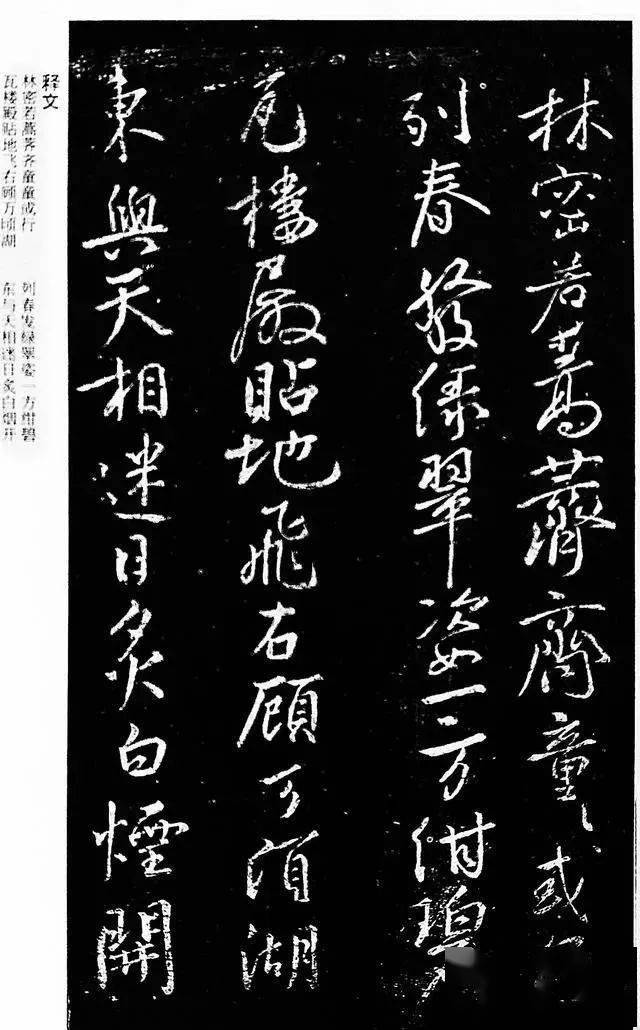 林密若蒿薺齊童〻或行
列春發綠翠姿一方紺碧
瓦樓殿貼地飛右顧万頃湖
東與天相迷目炙白煙開
释文
林密若蒿荠齐童童或行　列春发绿翠姿一方绀碧
瓦楼殿贴地飞右顾万顷湖　东与天相迷目炙白烟开